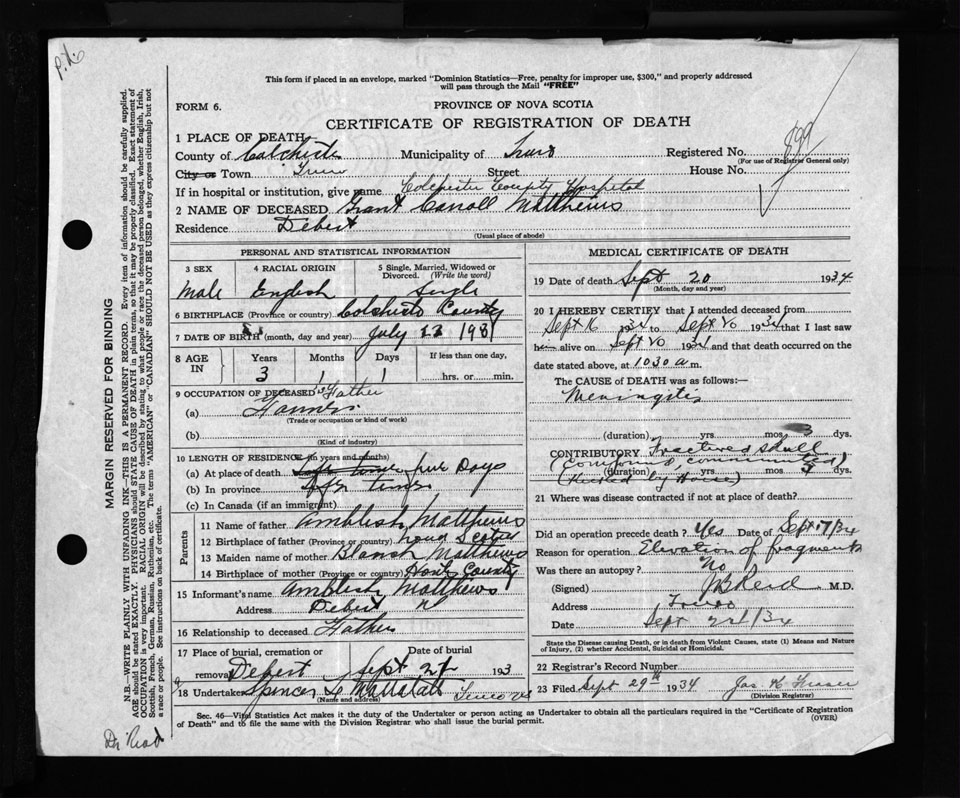 This form if placed in an envelope, marked "Dominion Statistics—Free, penalty for improper use, $300," and properly addressed
will pass through the Mail "FREE"
FORM 6.
PROVINCE OF NOVA SCOTIA
CERTIFICATE OF REGISTRATION OF DEATH
1 PLACE OF DEATH
County of Colchester Municipality of Truro Registered No. 899
(For use of Registrar General only)
City or Town Truro Street House No.
If in hospital or institution, give name Colchester County Hospital
2 NAME OF DECEASED Grant Carroll Matthews
Residence Debert
(Usual place of abode)
PERSONAL AND STATISTICAL INFORMATION
3 SEX 4 RACIAL ORIGIN 5 Single, Married, Widowed or Divorced. (Write the word)
Male English Single
6 BIRTHPLACE (Province or country) Colchester County
7 DATE OF BIRTH (month, day and year) July
8 AGE IN Years Months Days If less than one day,
3 1 1 hrs. or min.
9 OCCUPATION OF DECEASED Father
(a) Farmer
(Trade or occupation or kind of work)
(b)
(Kind of industry)
10 LENGTH OF RESIDENCE (in years and months)
(a) At place of death Days
(b) In province Life time
(c) In Canada (if an immigrant)
Parents
11 Name of father Matthews
12 Birthplace of father (Province or country) Nova Scotia
13 Maiden name of mother Blanch Matthews
14 Birthplace of mother (Province or country) Hants County
15 Informant's name Matthews
Address Debert
16 Relationship to deceased Father
17 Place of burial, cremation or removal Date of burial
Debert Sept 193
18 Undertaker Spencer & Truro NS
(Name and address)
MEDICAL CERTIFICATE OF DEATH
19 Date of death Sept 20 1934
(Month, day and year)
20 I HEREBY CERTIFY that I attended deceased from
Sept 16 1934 to Sept 20 1934 that I last saw
him alive on Sept 20 1934 and that death occurred on the
date stated above, at 1030 a m.
The CAUSE of DEATH was as follows:—
Meningitis
(duration) yrs. mos. 3 dys.
CONTRIBUTORY Fractured skull
(Compound, comminuted)
(duration) yrs. mos. dys.
(Kicked by Horse)
21 Where was disease contracted if not at place of death?
Did an operation precede death? Yes Date of Sept 17/34
Reason for operation Elevation of fragments
Was there an autopsy? No
(Signed) JB Reid M.D.
Address Truro
Date Sept /34
State the Disease causing Death, or in death from Violent Causes, state (1) Means and Nature
of Injury, (2) whether Accidental, Suicidal or Homicidal.
22 Registrar's Record Number
23 Filed Sept 29th 1934 Jas H Fraser
(Division Registrar)
Sec. 46—Vital Statistics Act makes it the duty of the Undertaker or person acting as Undertaker to obtain all the particulars required in the "Certificate of Registration
of Death" and to file the same with the Division Registrar who shall issue the burial permit. (OVER)
MARGIN RESERVED FOR BINDING
N.B.—WRITE PLAINLY WITH UNFADING INK—THIS IS A PERMANENT RECORD. Every item of information should be carefully supplied.
AGE should be stated EXACTLY. PHYSICIANS should STATE CAUSE OF DEATH in plain terms, so that it may be properly classified. Exact statement of
OCCUPATION is very important. RACIAL ORIGIN will be described by stating to what people or race the deceased person belonged, whether English, Irish,
Scottish, French, German, Russian, Ruthenian, etc. The terms "AMERICAN" or "CANADIAN" SHOULD NOT BE USED as they express citizenship but not
a race or people. See instructions on back of certificate.